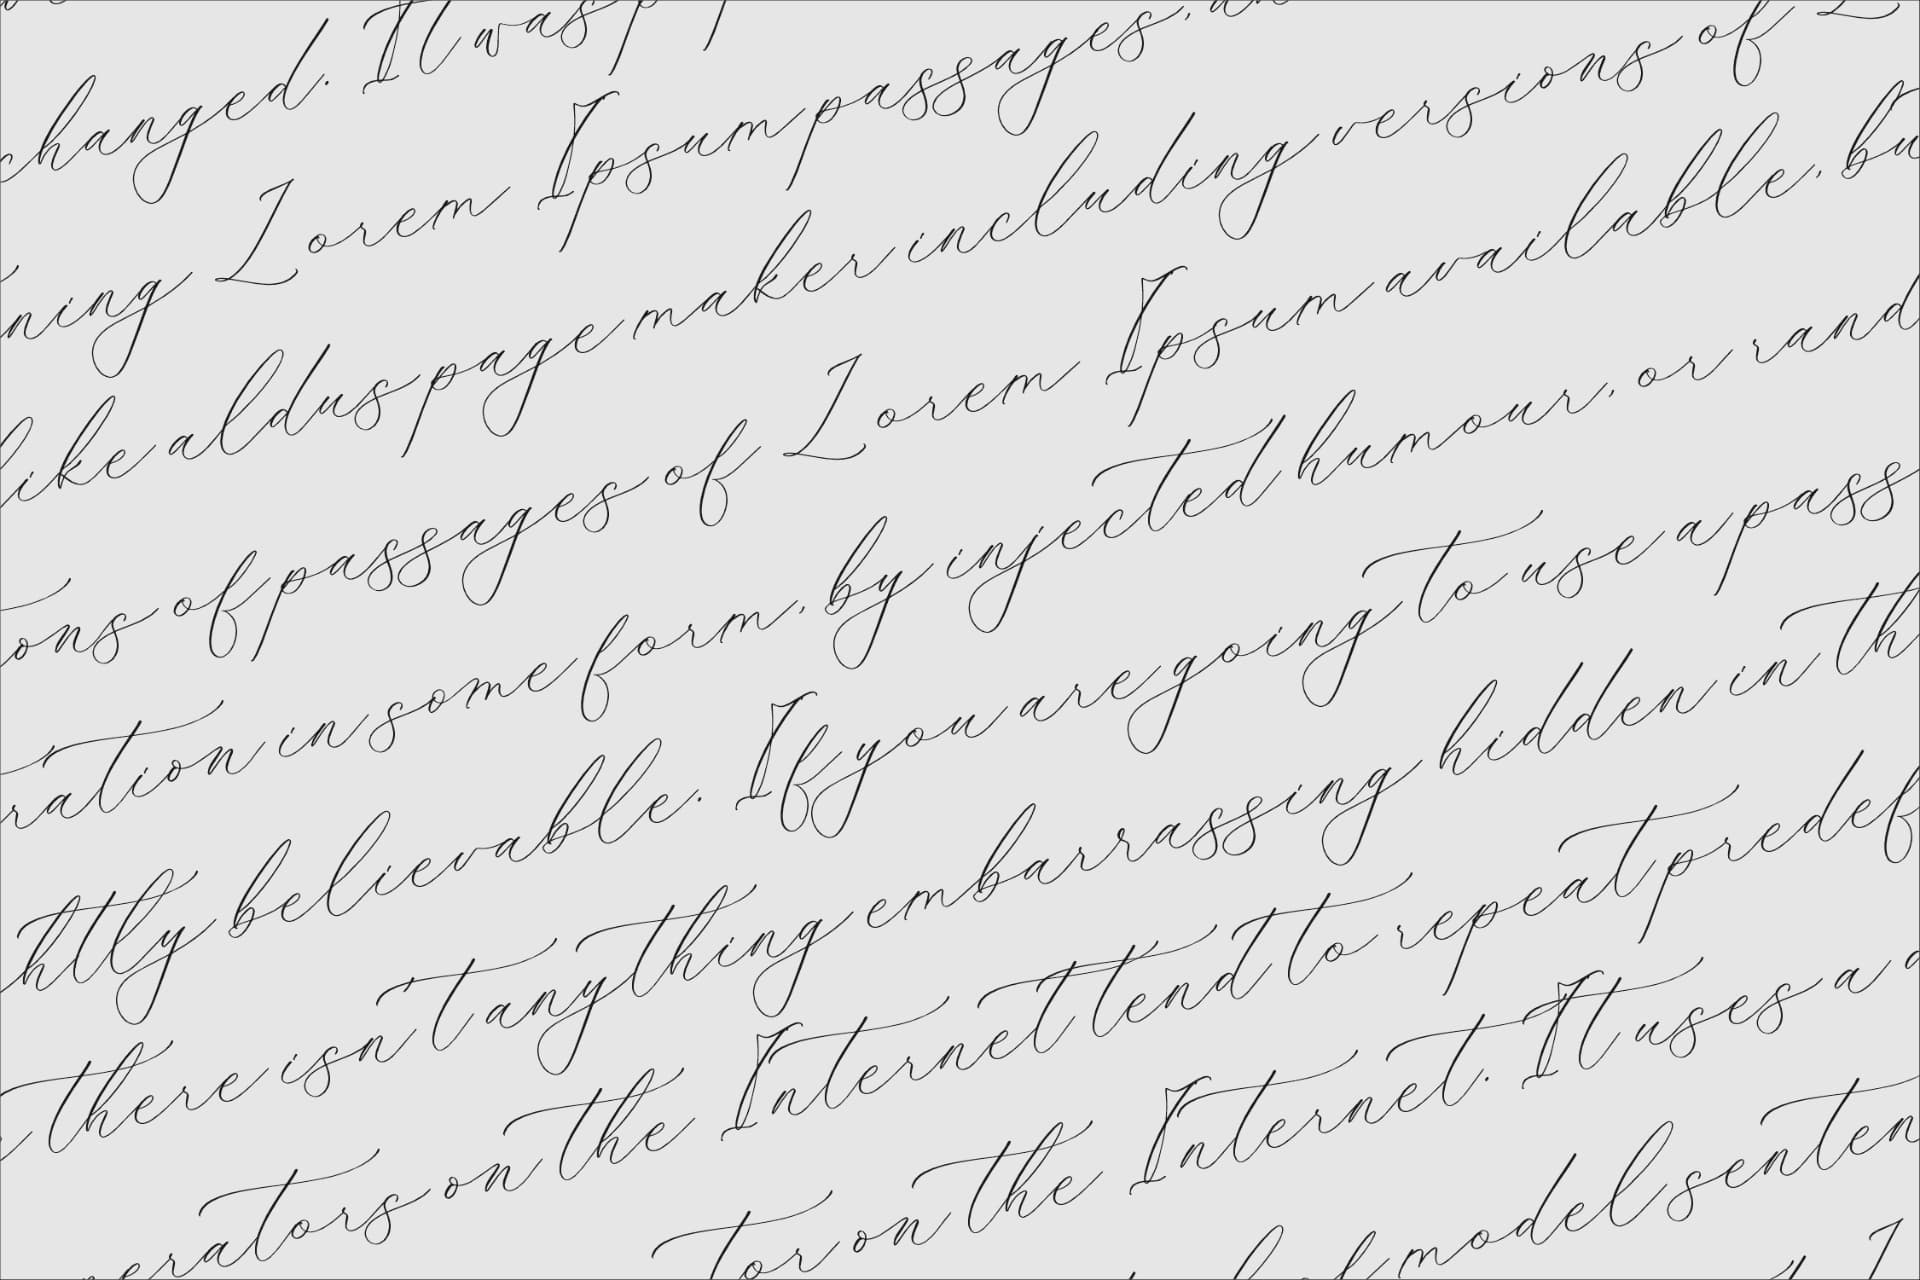 changed. It was
ning Lorem Ipsum passages,
like aldus page maker including versions of L
ons of passages of Lorem Ipsum available, bu
ration in some form, by injected humour, or rand
htly believable. If you are going to use a pass
there isn't anything embarrassing hidden in th
nerators on the Internet tend to repeat predef
tor on the Internet. It uses a
model senten